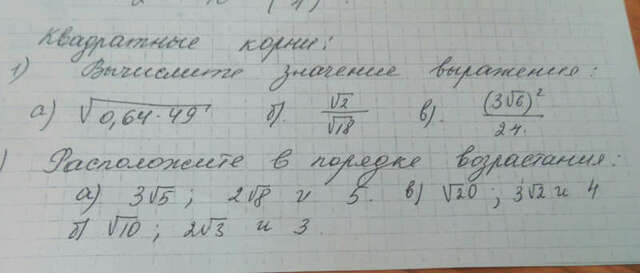 Квадратные корни:
1) Вычислите значение выражения:
а) √0,64·49 б). √2/√18 в). (3√6)²/24.
) Расположите в порядке возрастания:
а) 3√5 ; 2√8 и 5. в) √20 ; 3√2 и 4
б) √10 ; 2√3 и 3.